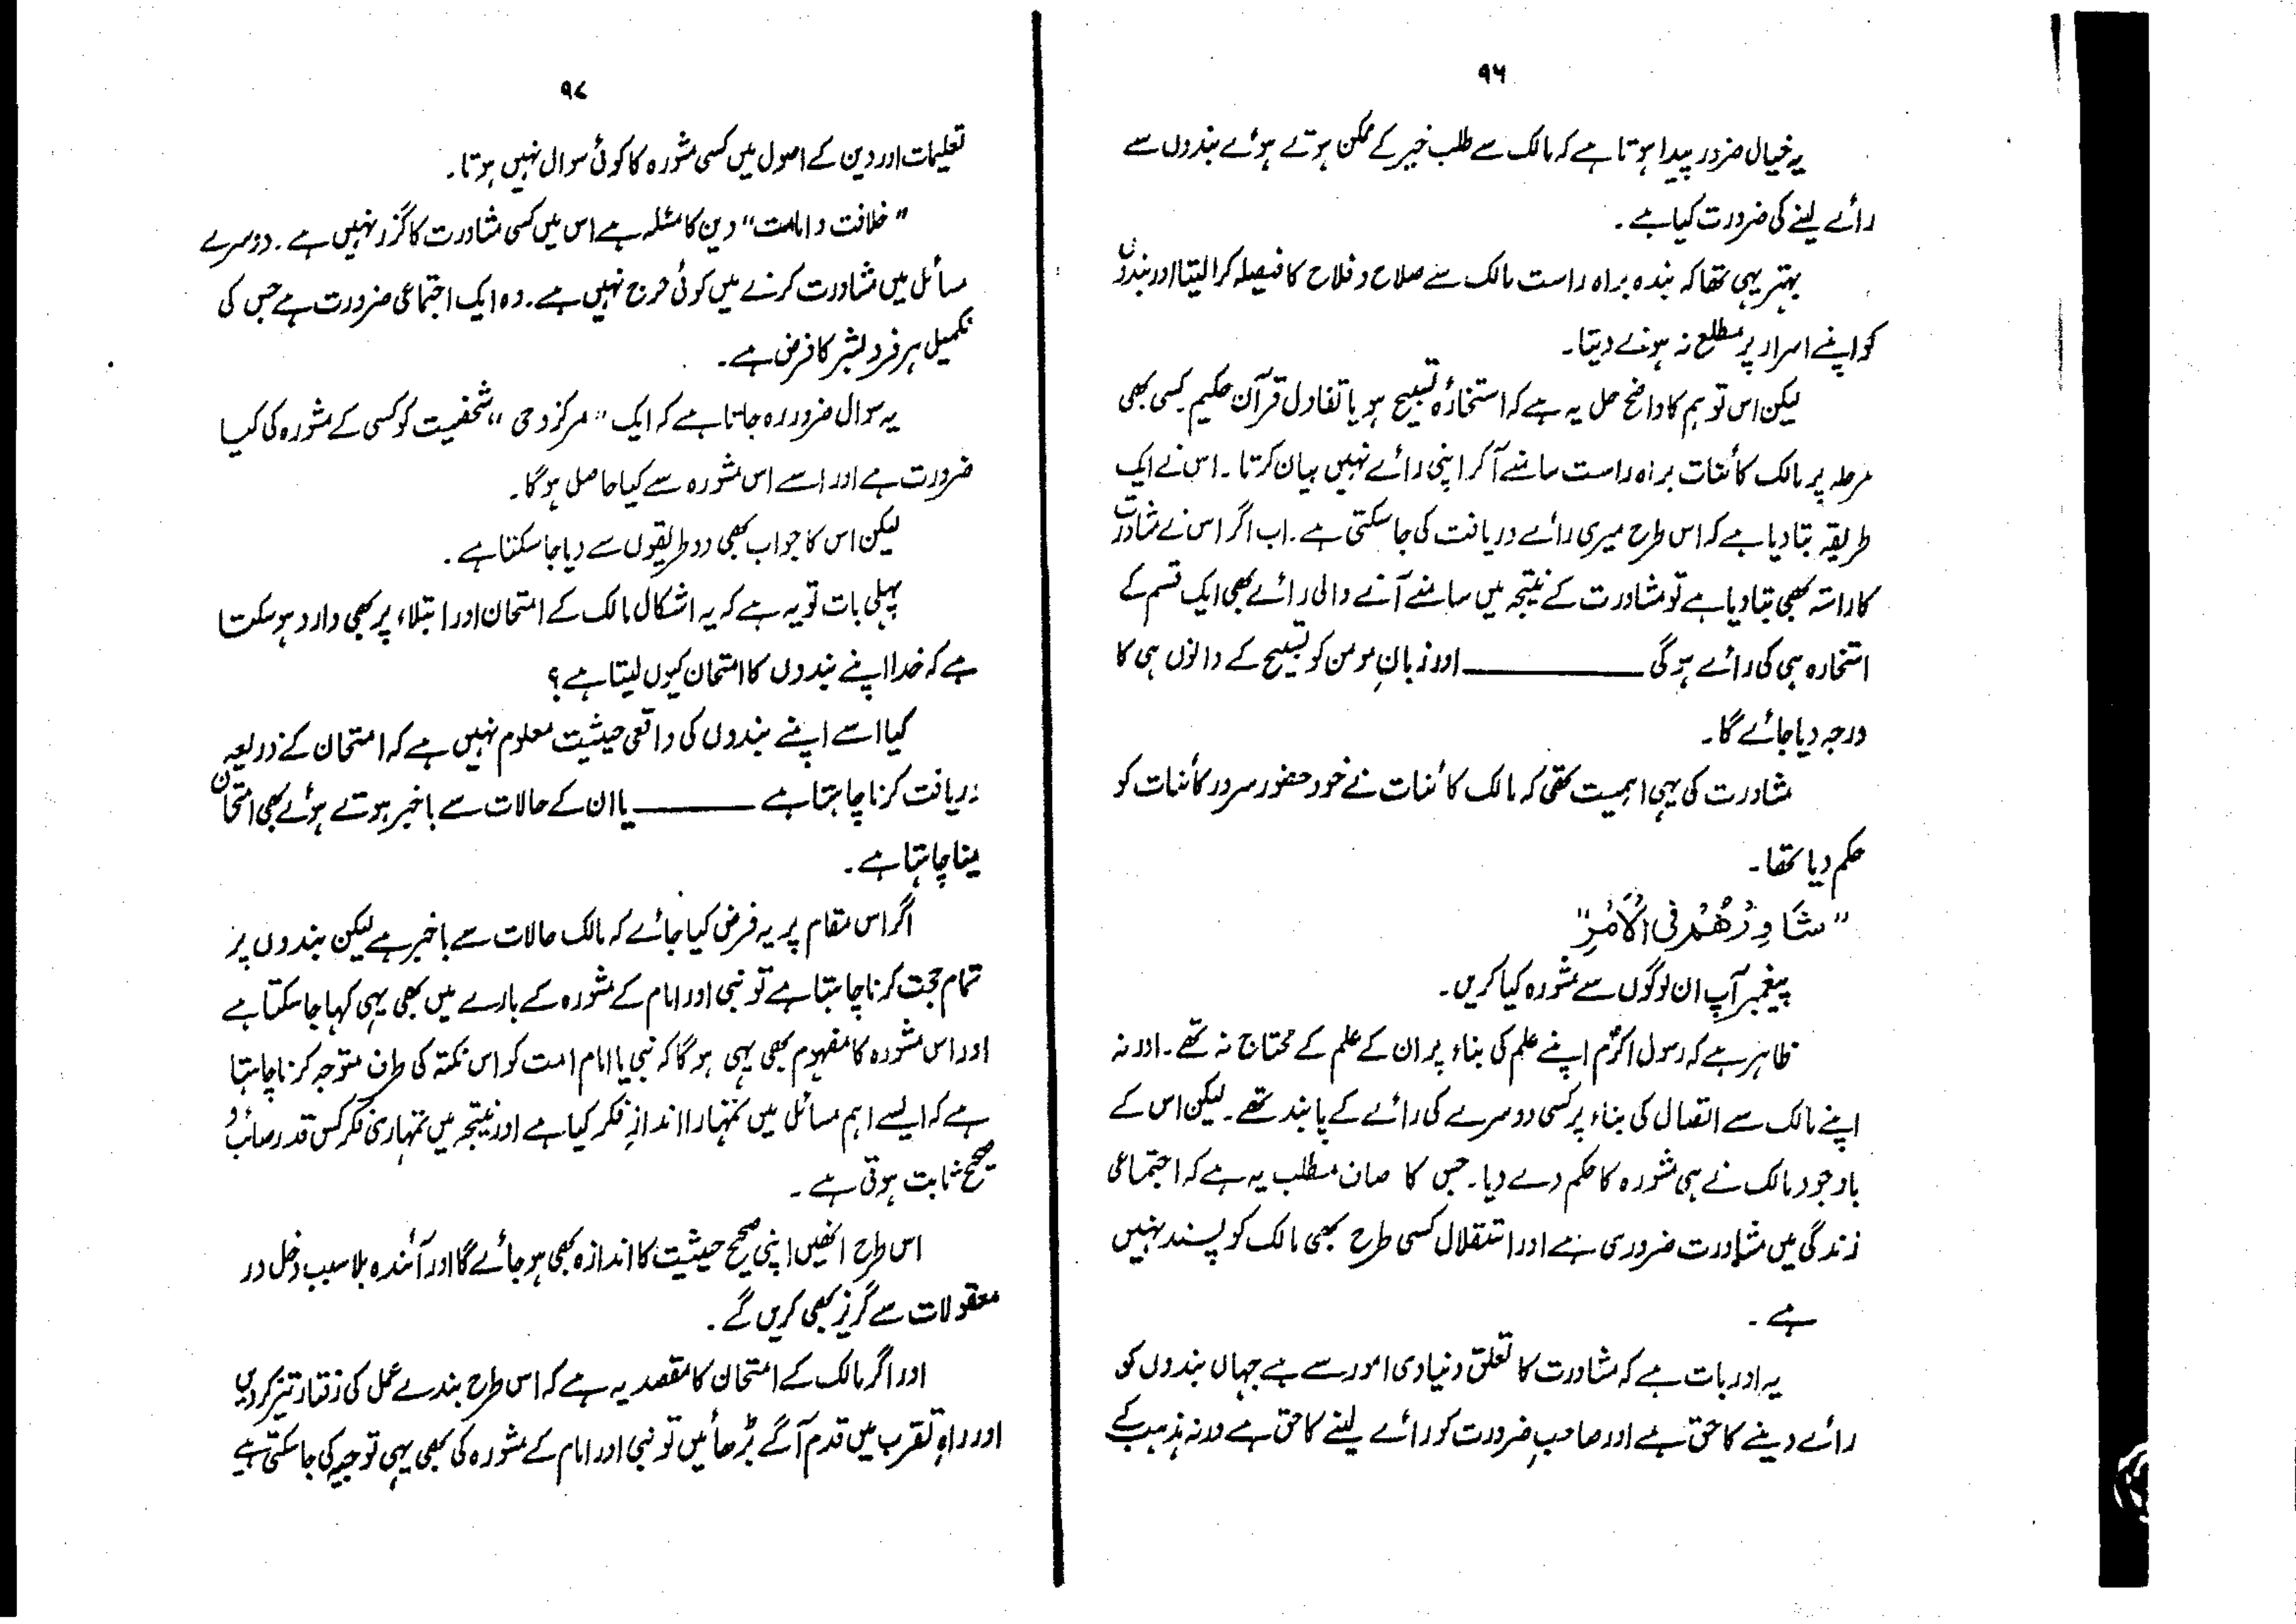 ۹۶
یہ خیال ضرور پیدا ہوتا ہے کہ مالک سے طلب خیر کے ممکن ہوتے ہوئے بندوں سے
رائے لینے کی ضرورت کیا ہے۔
بہتر یہی تھا کہ بندہ براہ راست مالک سے صلاح و فلاح کا فیصلہ کرا لیتا اور بندوں
کو اپنے اسرار پر مطلع نہ ہونے دیتا۔
لیکن اس توہم کا واضح حل یہ ہے کہ استخارۂ تسبیح ہو یا تفاول قرآن حکیم کسی بھی
مرحلہ پر مالک کائنات براہ راست سامنے آکر اپنی رائے نہیں بیان کرتا۔ اس نے ایک
طریقہ بتا دیا ہے کہ اس طرح میری رائے دریافت کی جا سکتی ہے۔ اب اگر اس نے مشاورت
کا راستہ بھی بتا دیا ہے تو مشاورت کے نتیجہ میں سامنے آنے والی رائے بھی ایک قسم کے
استخارہ ہی کی رائے ہوگی ــــــــــــ اور زبانِ مومن کو تسبیح کے دانوں ہی کا
درجہ دیا جائے گا۔
مشاورت کی یہی اہمیت تھی کہ مالک کائنات نے خود حضور سرور کائنات کو
حکم دیا تھا۔
"شَاوِرْهُمْ فِی الْاَمْرِ"
پیغمبر آپ ان لوگوں سے مشورہ کیا کریں۔
ظاہر ہے کہ رسول اکرمؐ اپنے علم کی بناء پر ان کے علم کے محتاج نہ تھے۔ اور نہ
اپنے مالک سے اتصال کی بناء پر کسی دوسرے کی رائے کے پابند تھے۔ لیکن اس کے
باوجود مالک نے ہی مشورہ کا حکم دے دیا۔ جس کا صاف مطلب یہ ہے کہ اجتماعی
زندگی میں مشاورت ضروری ہے اور استقلال کسی طرح بھی مالک کو پسند نہیں
ہے۔
یہ اور بات ہے کہ مشاورت کا تعلق دنیاوی امور سے ہے جہاں بندوں کو
رائے دینے کا حق ہے اور صاحبِ ضرورت کو رائے لینے کا حق ہے ورنہ مذہب کے
۹۷
تعلیمات اور دین کے اصول میں کسی مشورہ کا کوئی سوال نہیں ہوتا۔
"خلافت و امامت" دین کا مسئلہ ہے اس میں کسی مشاورت کا گزر نہیں ہے۔ دوسرے
مسائل میں مشاورت کرنے میں کوئی حرج نہیں ہے۔ وہ ایک اجتماعی ضرورت ہے جس کی
تکمیل ہر فرد بشر کا فرض ہے۔
یہ سوال ضرور رہ جاتا ہے کہ ایک "مرکز وحی" شخصیت کو کسی کے مشورہ کی کیا
ضرورت ہے اور اسے اس مشورہ سے کیا حاصل ہوگا۔
لیکن اس کا جواب بھی دو طریقوں سے دیا جا سکتا ہے۔
پہلی بات تو یہ ہے کہ یہ اشکال مالک کے امتحان اور ابتلاء پر بھی وارد ہو سکتا
ہے کہ خدا اپنے بندوں کا امتحان کیوں لیتا ہے؟
کیا اسے اپنے بندوں کی واقعی حیثیت معلوم نہیں ہے کہ امتحان کے ذریعہ
دریافت کرنا چاہتا ہے ــــــــ یا ان کے حالات سے باخبر ہوتے ہوئے بھی امتحان
لینا چاہتا ہے۔
اگر اس مقام پر یہ فرض کیا جائے کہ مالک حالات سے باخبر ہے لیکن بندوں پر
تمام حجت کرنا چاہتا ہے تو نبی اور امام کے مشورہ کے بارے میں بھی یہی کہا جا سکتا ہے
اور اس مشورہ کا مفہوم بھی یہی ہوگا کہ نبی یا امام امت کو اس نکتہ کی طرف متوجہ کرنا چاہتا
ہے کہ ایسے اہم مسائل میں تمہارا اندازِ فکر کیا ہے اور نتیجہ میں تمہاری فکر کس قدر صائب و
صحیح ثابت ہوتی ہے۔
اس طرح انھیں اپنی صحیح حیثیت کا اندازہ بھی ہو جائے گا اور آئندہ بلا سبب دخل در
معقولات سے گریز بھی کریں گے۔
اور اگر مالک کے امتحان کا مقصد یہ ہے کہ اس طرح بندے عمل کی رفتار تیز کر دیں
اور راہِ تقرب میں قدم آگے بڑھائیں تو نبی اور امام کے مشورہ کی بھی یہی توجیہ کی جا سکتی ہے